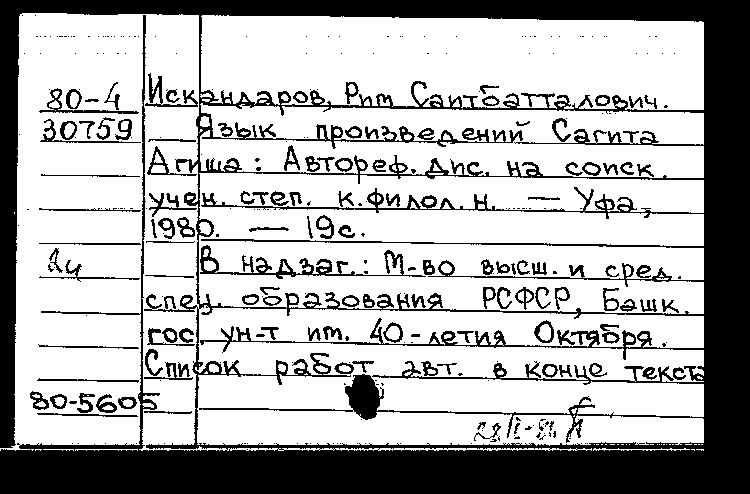 80-4 Искандаров, Рим Саитбатталович.
30759 Язык произведений Сагита
Агиша: Автореф. дис. на соиск.
учен. степ. к. филол. н. — Уфа,
1980. — 19с.
2и В надзаг.: М-во высш. и сред.
спец. образования РСФСР, Башк.
гос. ун-т им. 40-летия Октября.
Список работ авт. в конце текста
80-5605